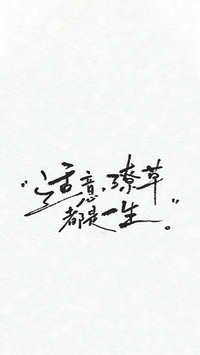 "适意,潦草
都是一生"。